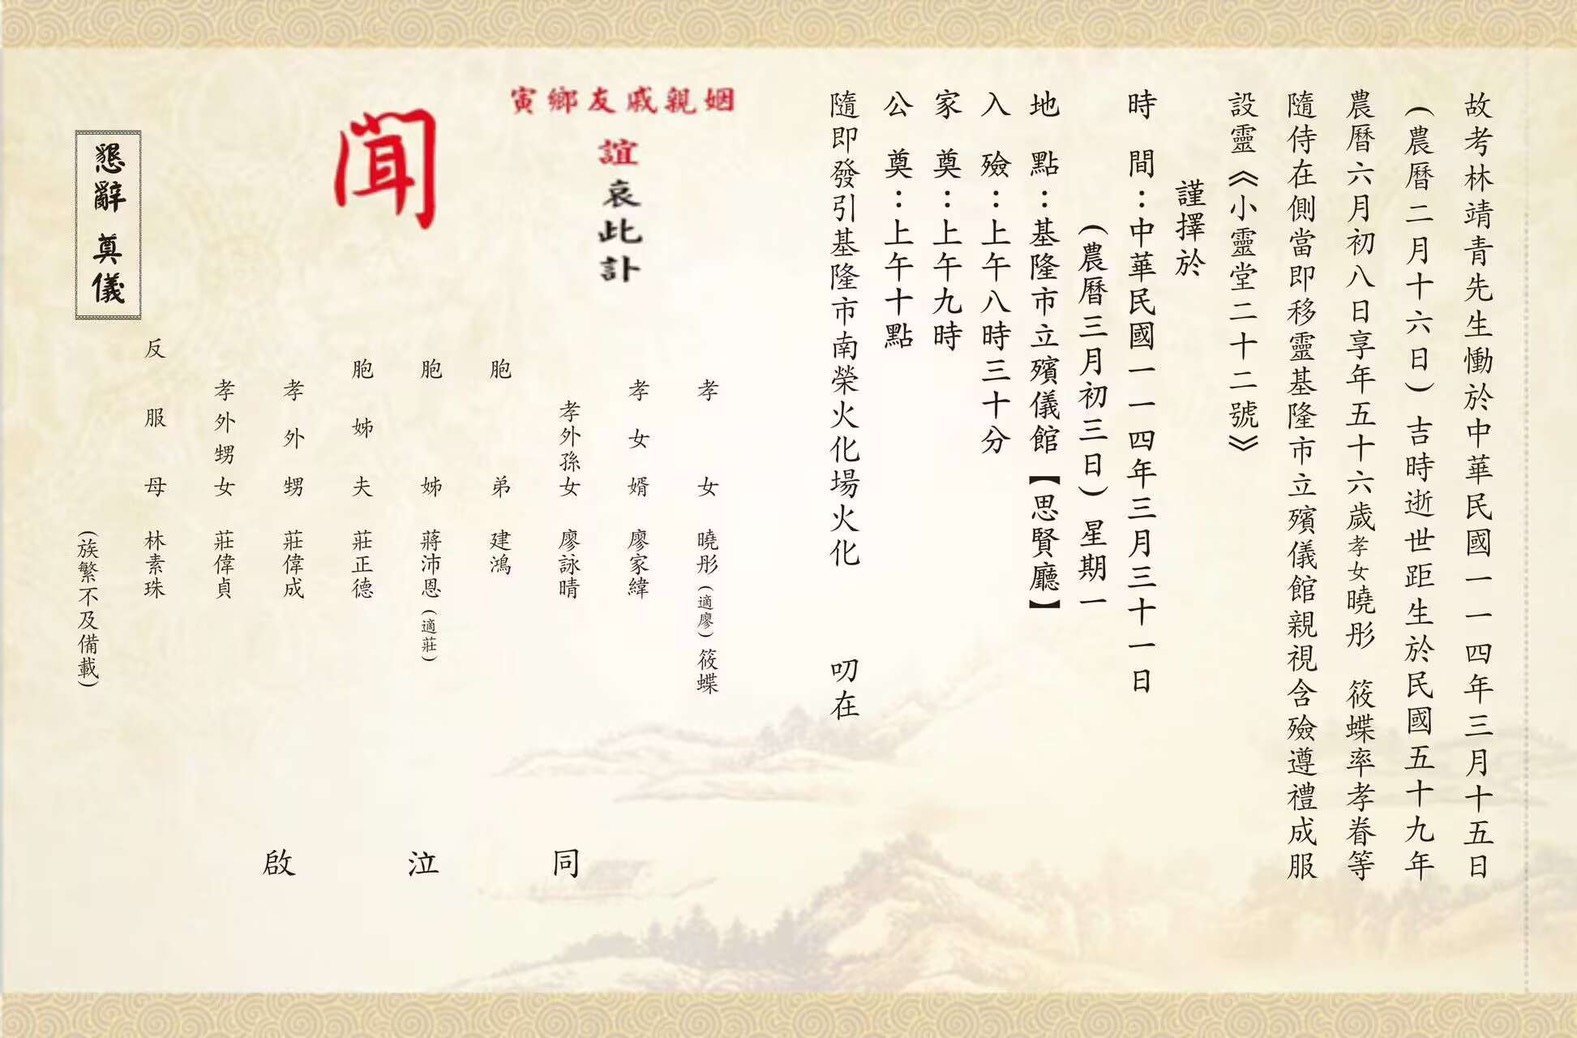 故考林靖青先生慟於中華民國一一四年三月十五日
(農曆二月十六日)吉時逝世距生於民國五十九年
農曆六月初八日享年五十六歲孝女曉彤 筱蝶率孝眷等
隨侍在側當即移靈基隆市立殯儀館親視含殮遵禮成服
設靈《小靈堂二十二號》
謹擇於
時 間：中華民國一一四年三月三十一日
(農曆三月初三日)星期一
地 點：基隆市立殯儀館【思賢廳】
入 殮：上午八時三十分
家 奠：上午九時
公 奠：上午十點
隨即發引基隆市南榮火化場火化 叨在
寅鄉友戚親姻
誼哀此訃
聞
孝女 曉彤(適廖)筱蝶
孝女婿 廖家緯
孝外孫女 廖詠晴
胞弟 建鴻
胞姊 蔣沛恩(適莊)
胞姊夫 莊正德
孝外甥 莊偉成
孝外甥女 莊偉貞
反服母 林素珠
(族繁不及備載)
同泣啟
懇辭 奠儀